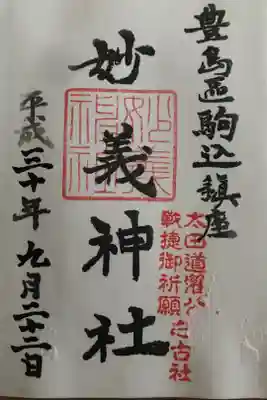 豊島區駒込鎮座
太田道灌公
戰捷御祈願之古社
妙義神社
平成三十年九月二十二日